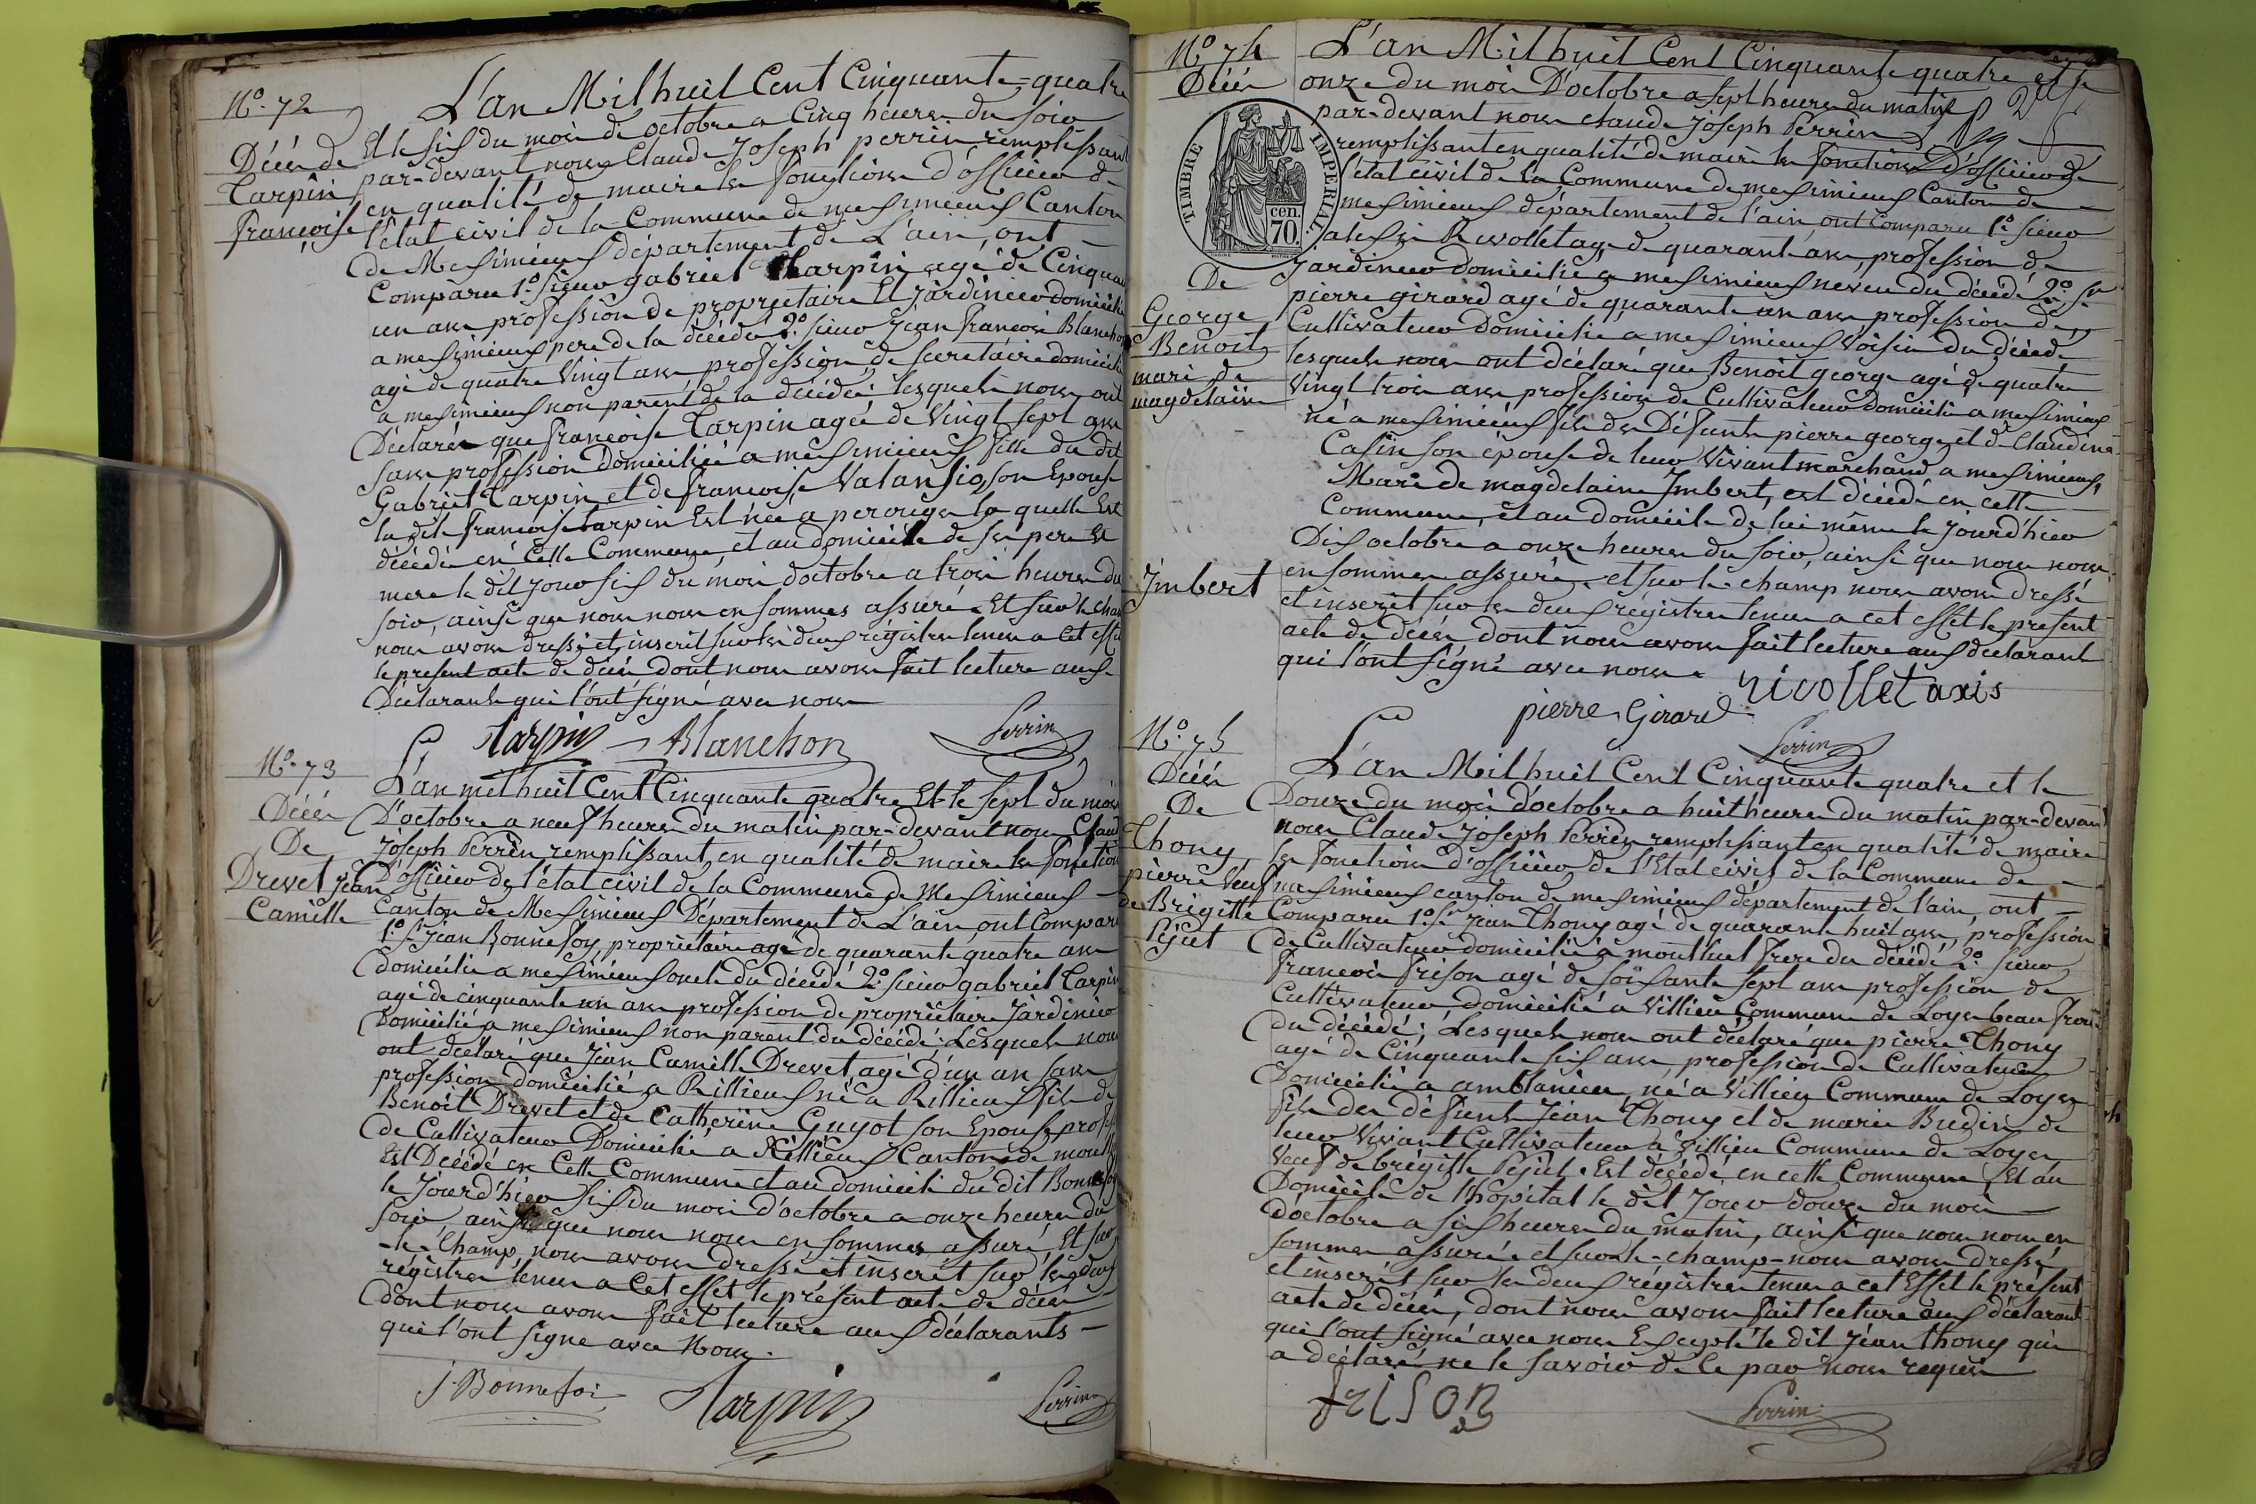 No. 72
Décés de
Tarpin
françoise
L'an Mil huit Cent Cinquante=quatre
Et le six du mois de octobre a Cinq heures du soir
par-devant nous Claude Joseph perrin remplissant
en qualité de maire les fonctions d'officier de
l'état civil de la Commune de meximieux Canton
de Meximieux département de L'ain, ont
Comparu 1o. sieur gabriel Tharpin agé de Cinquan
un ans profession de propriétaire Et Jardinier domicilié
a meximieux pere de la décédée 2o. sieur Jean françois Blanchon
agé de quatre Vingt ans profession de secretaire domicilié
a meximieux non parent de la décédée; lesquels nous ont
Déclarés que françoise Tarpin agée de Vingt sept ans
sans profession Domiciliée a meximieux fille du dit
Gabriel Tarpin et de françoise Valansio, son Epouse
la dite françoise tarpin Est née a perouges la quelle Est
décédé en Cette Commune et au domicile de ses pere Et
mere le dit Jour six du mois d'octobre a trois heures du
soir, ainsi que nous nous en sommes assuré. Et sur le cham
nous avons dressé et inscrit sur les deux régistres tenus a cet effet
le present acte de décés dont nous avons fait lecture aux
Déclarants qui l'ont signé avec nous
Tarpin Blanchon Perrin
No. 73
Décés
De
Drevet Jean
Camille
L'an mil huit Cent Cinquante quatre Et le sept du mois
D'octobre a neuf heures du matin par-devant nous Claud
Joseph Perrin remplissant en qualité de maire les fonction
D'officier de l'état civil de la Commune de Meximieux
Canton de Meximieux Département de L'ain ont Comparu
1o. sr. Jean Bonnefoy, propriétaire agé de quarante quatre ans
domicilié a meximieux oncle du décédé 2o. sieur gabriel Tarpin
agé de cinquante un ans profession de propriétaire Jardinier
Domicilié a meximieux non parent du décédé: Lesquels nous
ont déclaré que Jean Camille Drevet, agé d'un an sans
profession domicilié a Rillieux né a Rillieux fils de
Benoit Drevet et de Catherine Guyot son Epouse profes
de Cultivateur Domicilié a Rillieux Canton de montl
Est Décédé en Cette Commune et au domicile du dit Bonnefoy
le Jourd'hier six du mois d'octobre a onze heures du
soir, ainsi que nous nous en sommes assuré, Et sur
-le-Champ nous avons dressé et inscrit sur les deux
régistres tenus a Cet effet le présent acte de décés
dont nous avons fait lecture aux déclarants-
qui l'ont signé avec Nous.
J. Bonnefoi Tarpin Perrin
No. 74
Décés
De
George
Benoit
mari de
magdelaine
Imbert
TIMBRE IMPERIAL
cen.
70.
L'an Mil huit Cent Cinquante quatre et le
onze du mois D'octobre a sept heures du matin
par-devant nous Claude Joseph Perrin
remplissant en qualité de maire les fonctions D'officier de
l'état civil de la Commune de meximieux Canton de
meximieux département de l'ain, ont Comparu 1o. sieur
alexi Nicollet agé de quarante ans, profession de
Jardinier Domicilié a meximieux neveu du décédé 2o. sr
pierre girard agé de quarante un ans profession de
Cultivateur Domicilié a meximieux Voisin du décédé
lesquels nous ont déclaré que Benoit george agé de quatre
Vingt trois ans profession de Cultivateur Domicilié a meximieux
né a meximieux fils des Défunts pierre george et de Claudine
Casin son épouse de leur Vivant marchand a meximieux,
Mari de magdelaine Imbert, est décédé en cette
Commune, et au domicile de lui même le Jourd'hier
Dix octobre a onze heures du soir, ainsi que nous nous
en sommes assuré. et sur le champ nous avons dressé
et inscrit sur les deux régistres tenus a cet effet le present
acte de décés dont nous avons fait lecture aux declarants
qui l'ont signé avec nous.
pierre Girard nicollet axis
Perrin
No. 75
Décés
De
Thony
pierre Veuf
de Brigitte
Péjut
L'an Mil huit Cent Cinquante quatre et le
Douze du mois d'octobre a huit heures du matin par-devant
nous Claude Joseph Perrin remplissant en qualité de maire
les fonctions d'officier de l'Etat civil de la Commune de
meximieux canton de meximieux département de l'ain, ont
Comparu 1o. sr. Jean Thony agé de quarante huit ans, profession
de Cultivateur domicilié a montluel frere du décédé 2o. sieur
François frison agé de soixante sept ans profession de
Cultivateur domicilié a Villieu Commune de Loyes beau frere
du décédé; Lesquels nous ont déclaré que pierre Thony
agé de Cinquante six ans, profession de Cultivateur
Domicilié a amblanieu, né a Villieu Commune de Loyes
fils des défunt Jean Thony et de marie Budin de
leur Vivant Cultivateur a Villieu Commune de Loyes
Veuf de brégitte Péjut. Est décédé en cette Commune Et au
Domicile de l'hôpital le dit Jour douze du mois
d'octobre a six heures du matin, ainsi que nous nous en
sommes assuré et sur-le-champ-nous avons dressé
et inscrit sur les deux régistres tenus a cet Effet le présent
acte de décés, dont nous avons fait lecture aux déclarant
qui l'ont signé avec nous Excepté le dit Jean thony qui
a déclaré ne le savoir de ce par nous requis
frison Perrin